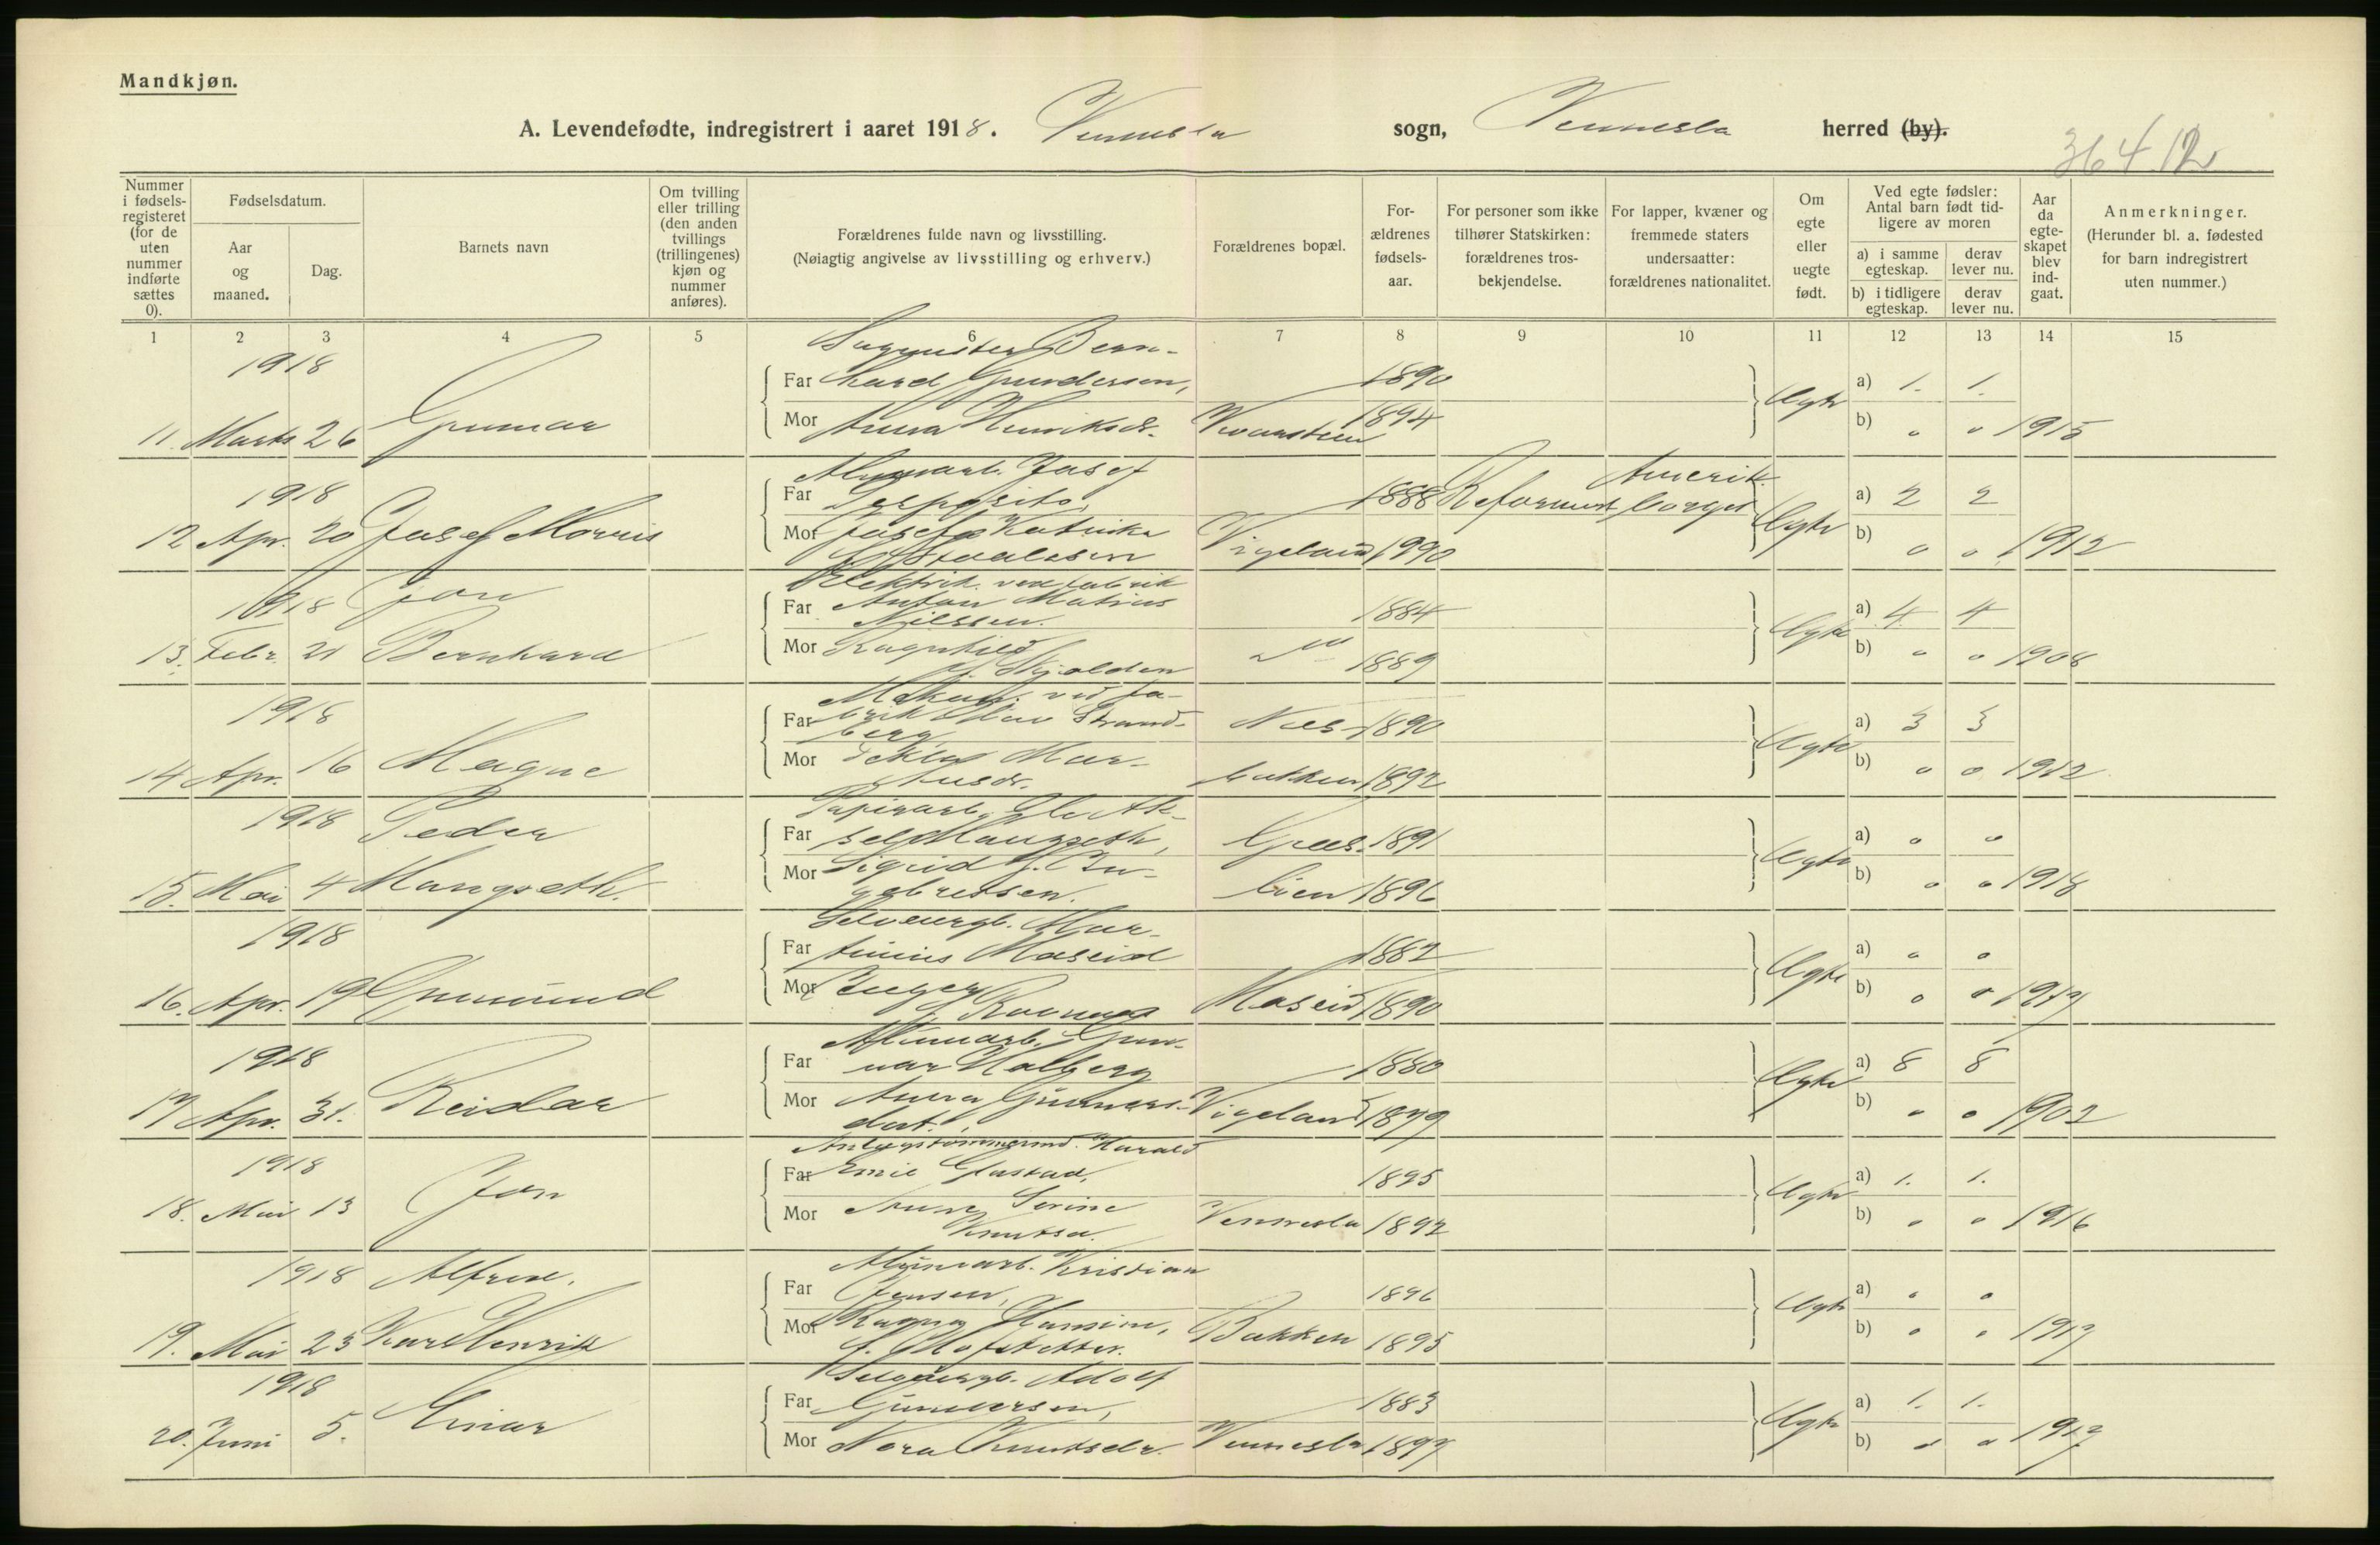 Mandkjøn.
A. Levendefødte, indregistrert i aaret 1918. Vennesla sogn, Vennesla herred (by).
364 12
Nummer i fødsels-registeret (for de uten nummer indførte sættes 0).
Fødselsdatum.
Aar og maaned.
Dag.
Barnets navn
Om tvilling eller trilling (den anden tvillings (trillingenes) kjøn og nummer anføres).
Forældrenes fulde navn og livsstilling.
(Nøiagtig angivelse av livsstilling og erhverv.)
Forældrenes bopæl.
For-ældrenes fødsels-aar.
For personer som ikke tilhører Statskirken: forældrenes tros-bekjendelse.
For lapper, kvæner og fremmede staters undersaatter: forældrenes nationalitet.
Om egte eller uegte født.
Ved egte fødsler: Antal barn født tid-ligere av moren
a) i samme egteskap.
derav lever nu.
b) i tidligere egteskap.
derav lever nu.
Aar da egte-skapet blev ind-gaat.
Anmerkninger.
(Herunder bl. a. fødested for barn indregistrert uten nummer.)
1 2 3 4 5 6 7 8 9 10 11 12 13 14 15
1918 Bern-
Far hard Gundersen, 1890 a) 1. 1.
11. Marts 26 Gunnar Mor Anna Henriksdr. 1894 Egte b) " " 1915
1918 Josef
Far 1888 Reformert Amerik. borger a) 2 2
12 Apr. 20 Josef Morris Mor Josefa Katrika Vigeland 1890 Egte b) o o 1912
Staalesen
1918 Jon Elektrik. ved fabrik
Far Anton Matius 1884 a) 4 4
Nilssen.
13. Febr. 21 Bernhard Mor Ragnhild 1889 Egte b) " o 1908
f. Skjolden
1918 ved fa-
Far brik Olav Strand- 1890 a) 3 3
berg
14 Apr. 16 Magne Mor Tekla Mar- bakken 1892 Egte b) o o 1912
tinsdr.
1918 Peder Papirarb. Ole Ak-
Far sel Mangseth, Grees- 1891 a) o o
15. Mai 4 Mangseth. Mor Sigrid f. In- lien 1896 Egte b) o o 1918
gebretsen.
1918 Selveiergb. Mar-
Far tinius Moseid 1882 a) o o
16. Apr. 19 Gunmund Mor Inger Moseid 1890 Egte b) o o 1917
1918 Alumarb. Gun-
Far nar Halberg 1880 a) 8 8
17 Apr. 31. Reidar Mor Anna Gunnars- Vigeland 1879 Egte b) " o 1902
dat.
1918 Anlægstømmermd. Harald
Far Emil Gfastad, 1895 a) 1. 1.
18. Mai 13 Jon Mor Anna Serine Vennesla 1892 Egte b) " o 1916
Knutsd.
1918 Alfred. Alumarb. Kristian
Far Jensen, 1896 a) o o
19. Mai 23 Karl Henrik Mor Ragna Hansine, Bakken 1895 Egte b) o o 1917
f. Hofstetter.
1918 Selveiergb. Adolf
Far Gundersen, 1883 a) 1. 1.
20. Juni 5. Einar Mor Nora Knutsdr. Vennesla 1897 Egte b) " " 1917